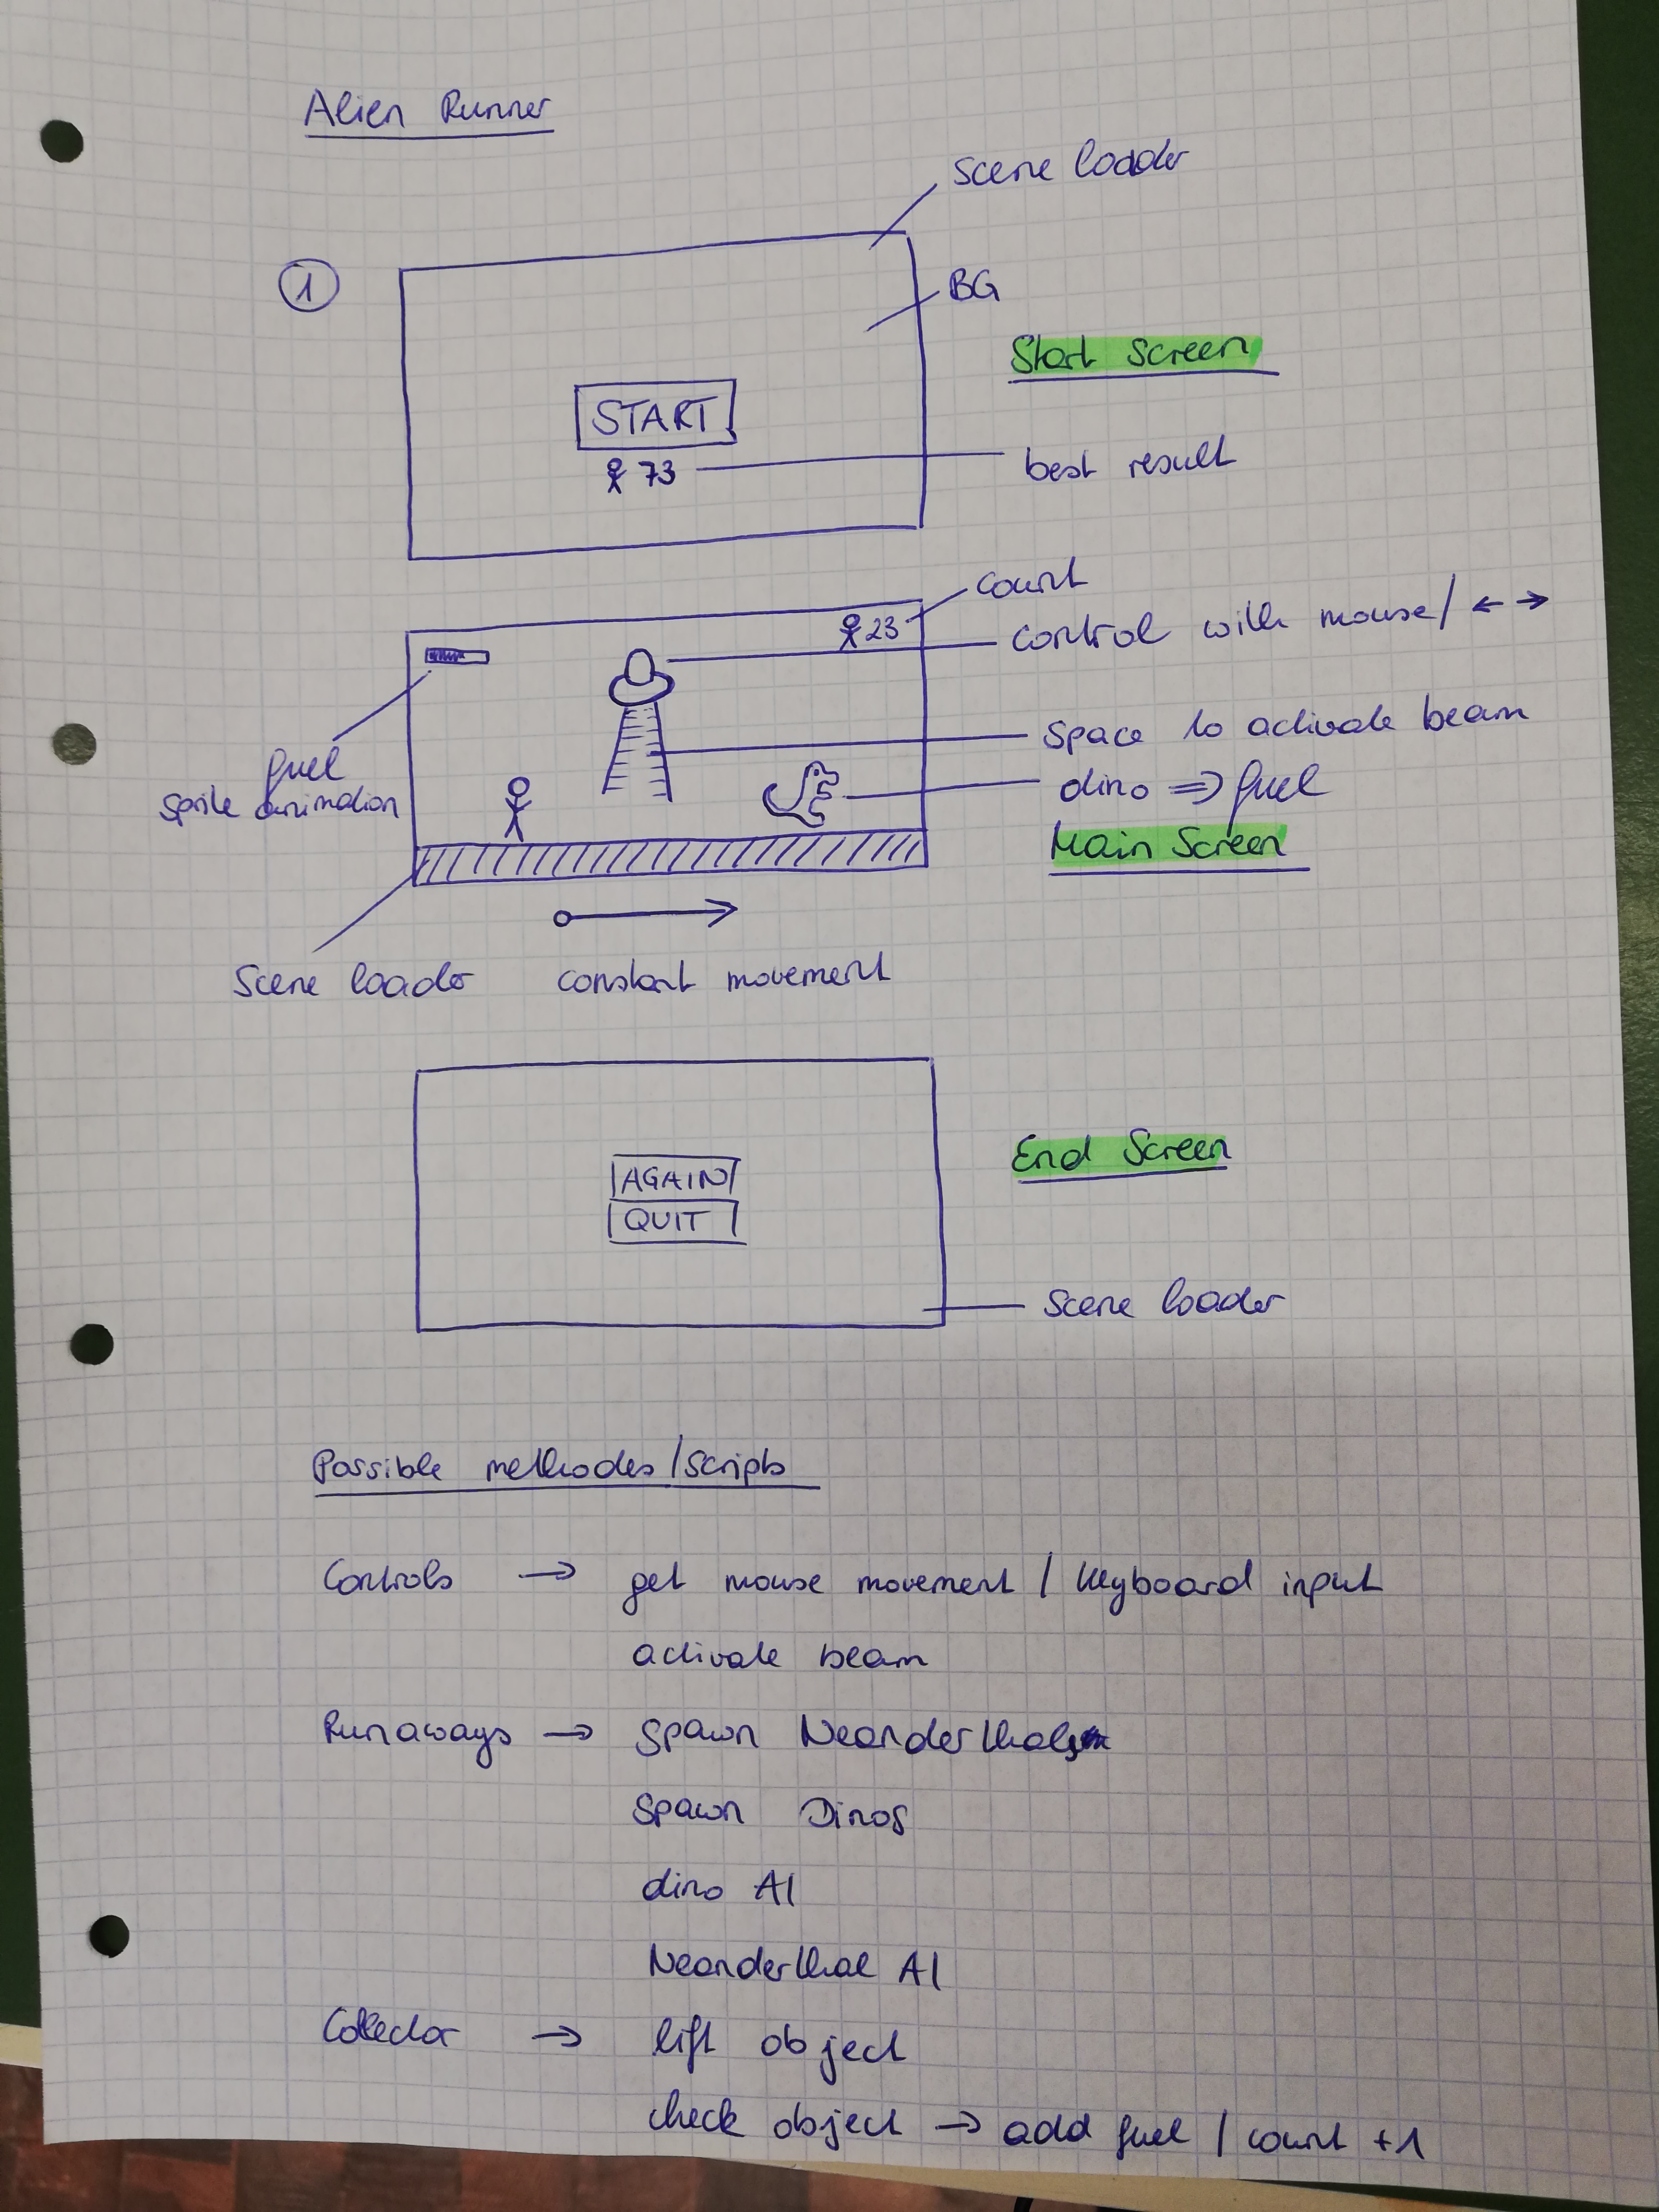 Alien Runner
Scene loader
1
BG
Start Screen
START
73
best result
count
23
control with mouse / ← →
Space to activate beam
fuel
sprite animation
dino ⇒ fuel
Main Screen
Scene loader
constant movement
AGAIN
QUIT
End Screen
Scene loader
Possible methodes / Scripts
Controls → get mouse movement / keyboard input
activate beam
Runaways → Spawn Neanderthals
Spawn Dinos
dino AI
Neanderthal AI
Collector → lift object
check object → add fuel / count +1